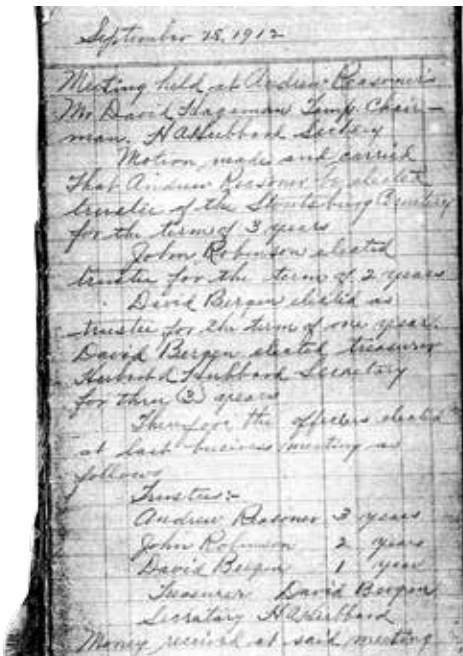 September 28, 1912
Meeting held at Andrew Reasoner's
Mr David Hageman Temp. Chair-
man. H A Hubbard Sectery
Motion made and carried
That Andrew Reasoner be elected
trustee of the Stoutsburg Cemetery
for the term of 3 years
John Robinson elected
trustee for the term of 2 years
David Bergen elected as
trustee for the term of one year.
David Bergen elected treasurer
Hubbard Secretary
for three (3) years
Therefore the officers elected
at last business meeting as
follows
Trustee:-
Andrew Reasoner 3 years
John Robinson 2 years
David Bergen 1 year
Treasurer David Bergen
Secretary H A Hubbard
Money received at said meeting